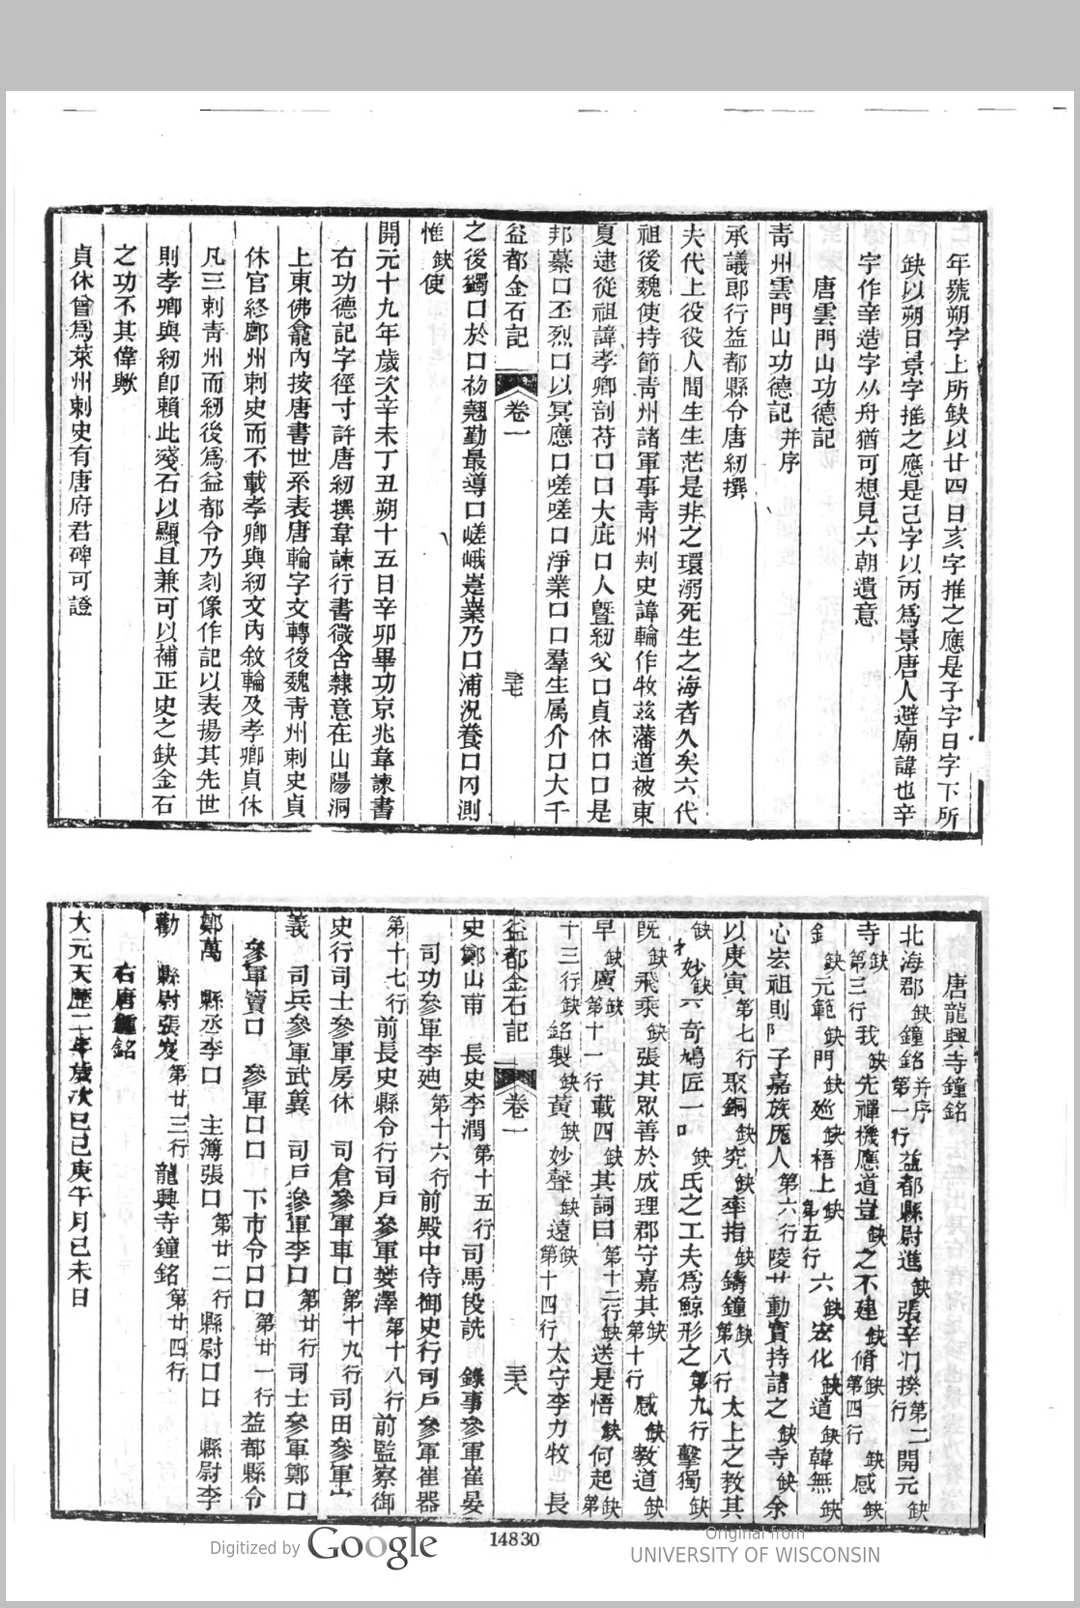 年號朔字上所缺以廿四日亥字推之應是子字日字下所
缺以朔日景字推之應是己字以丙爲景唐人避廟諱也辛
字作䇂造字从舟猶可想見六朝遺意
唐雲門山功德記
靑州雲門山功德記并序
承議郎行益都縣令唐紉撰
夫代上役役人間生生茫是非之環溺死生之海者久矣六代
祖後魏使持節靑州諸軍事靑州刺史諱輪作牧兹藩道被東
夏逮從祖諱孝卿剖苻口口大庇口人曁紉父口貞休口口是
邦纂口丕烈口以冥應口嗟嗟口淨業口口羣生屬介口大千
益都金石記 卷一 三七
之後蠲口於口礿翹勤最導口嵯峨嶷嶪乃口浦況養口冈測
惟缺使
開元十九年歲次辛未丁丑朔十五日辛卯畢功京兆韋諫書
右功德記字徑寸許唐紉撰韋諫行書微含隸意在山陽洞
上東佛龕內按唐書世系表唐輪字文轉後魏靑州刺史貞
休官終鄜州刺史而不載孝卿與紉文內敘輪及孝卿貞休
凡三刺靑州而紉後爲益都令乃刻像作記以表揚其先世
則孝卿與紉卽賴此殘石以顯且兼可以補正史之缺金石
之功不其偉歟
貞休曾爲萊州刺史有唐府君碑可證
唐龍興寺鐘銘
北海郡缺鐘銘并序第一行益都縣尉進缺張辛撰第二行開元缺
寺缺第三行我缺先禪機應道豈缺之不建缺脩缺第四行缺感缺
缺元範缺門缺缺梧上缺第五行六缺宏化缺道缺韓無缺
心宏祖則子嘉族厖人第六行陵廿動寶持諸之缺寺缺余
以庚寅第七行聚銅缺究缺率指缺鑄鐘缺第八行太上之教其
缺妙缺六奇鳩匠一口缺氏之工夫爲鯨形之第九行擊獨缺
旣缺飛乘缺張其眾善於成理郡守嘉其缺第十行感缺教道缺
早缺廣缺第十一行載四缺其詞曰第十二行缺送是悟缺何起缺第
十三行缺銘製缺黃缺妙聲缺遠缺第十四行太守李力牧 長
益都金石記 卷一 三八
史鄭山甫 長史李潤第十五行司馬段詵 錄事參軍崔晏
司功參軍李廸第十六行前殿中侍御史行司戶參軍崔器
第十七行前長史縣令行司戶參軍婁澤第十八行前監察御
史行司士參軍房休 司倉參軍車口第十九行司田參軍
義 司兵參軍武冀 司戶參軍李口第廿行司士參軍鄭口
參軍竇口 參軍口口 下市令口口第廿一行益都縣令
鄭萬 縣丞李口 主簿張口第廿二行縣尉口口 縣尉李
勸 縣尉張岌第廿三行龍興寺鐘銘第廿四行
右唐鐘銘
大元天歷二年歲次己己庚午月己未日
14830
Digitized by Google
Original from
UNIVERSITY OF WISCONSIN